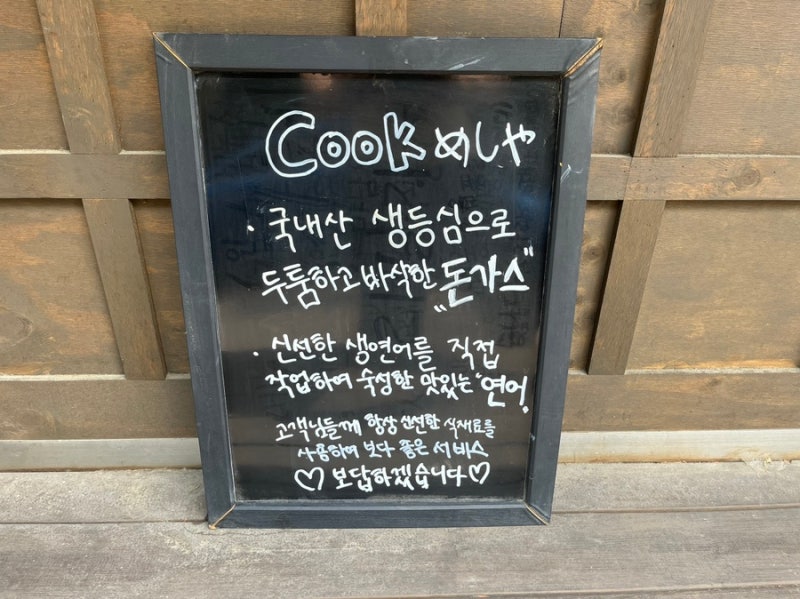 Cook めしや
· 국내산 생등심으로
두툼하고 바삭한 "돈가스"
· 신선한 생연어를 직접
작업하여 숙성한 맛있는 "연어"
고객님들께 항상 신선한 식재료를
사용하여 보다 좋은 서비스
♡ 보답하겠습니다 ♡